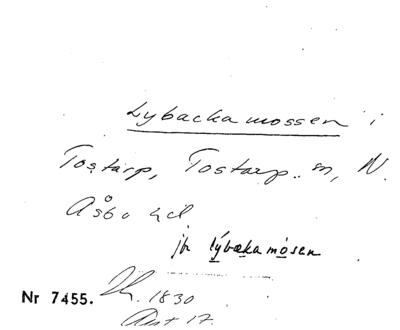 Lybackamossen i
Tostarp, Tostarp.. m, N.
Åsbo hd
jfr lýbækamósen
Nr 7455. 1830
Ant 17.